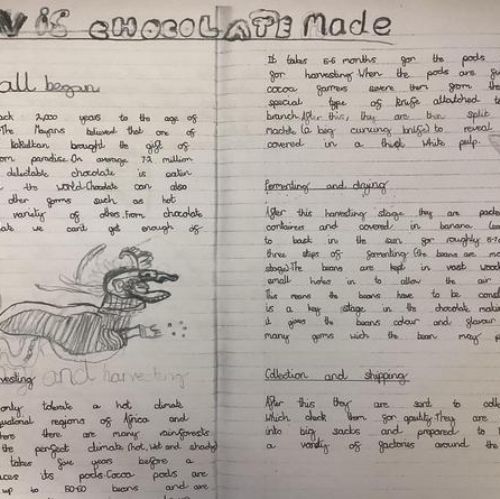 W is CHOCOLATE Made
all began
ack 2,000 years to the age of
The Mayans believed that one of
kukulkan brought the gift of
om paradise. On average 7.2 million
delectable chocolate is eaten
the world. Chocolate can also
other forms such as hot
variety of others. From chocolate
ate we can't get enough of
and harvesting
vesting
only tolerate a hot climate
equatorial regions of Africa and
here there are many rainforests
the perfect climate (hot, wet and shady)
takes five years before a
uces its pods. Cocoa pods are
up to 50-60 beans and are
It takes 5-6 months for the pods
for harvesting. When the pods are
cocoa farmers severe them from the
special type of knife attatched to
branch. After this, they are then split
machete (a big curving knife) to reveal
covered in a thick white pulp.
Fermenting and drying
After this harvesting stage they are packe
containers and covered in banana
to bask in the sun for roughly 5-7
three steps of fermenting (the beans are mo
stage). The beans are kept in vast wood
small holes in to allow the air
This means the beans have to be const
is a key stage in the chocolate makin
it gives the beans colour and flavour
many germs wich the bean may p
Collection and shipping
After this they are sent to coll
which check them for quality. They are
into big sacks and prepared to
a variety of factories around the